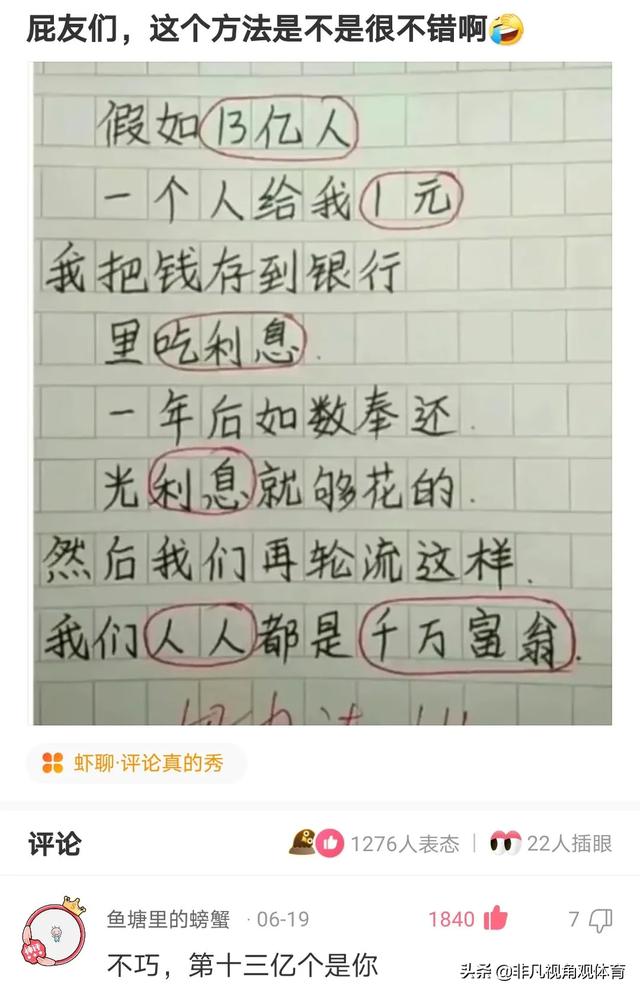 屁友们，这个方法是不是很不错啊🤣
假如13亿人
一个人给我1元
我把钱存到银行
里吃利息.
一年后如数奉还.
光利息就够花的.
然后我们再轮流这样.
我们人人都是千万富翁.
虾聊·评论真的秀
评论
1276人表态
22人插眼
鱼塘里的螃蟹 · 06-19
1840
7
不巧，第十三亿个是你
头条 @非凡视角观体育